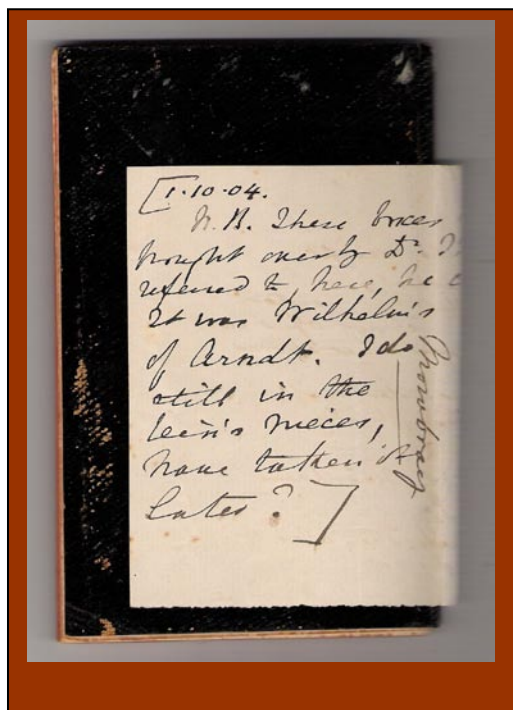 [1.10.04.
N.B. These boxes
brought over by Dr.
referred to, here, he
It was Wilhelm's
of Arndt. I do
still in the
lein's nieces,
have taken it
later?]
Mowbray